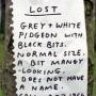 LOST
GREY + WHITE
PIDGEON WITH
BLACK BITS.
NORMAL SIZE.
A BIT MANGY
LOOKING.
DOES NOT HAVE
A NAME.